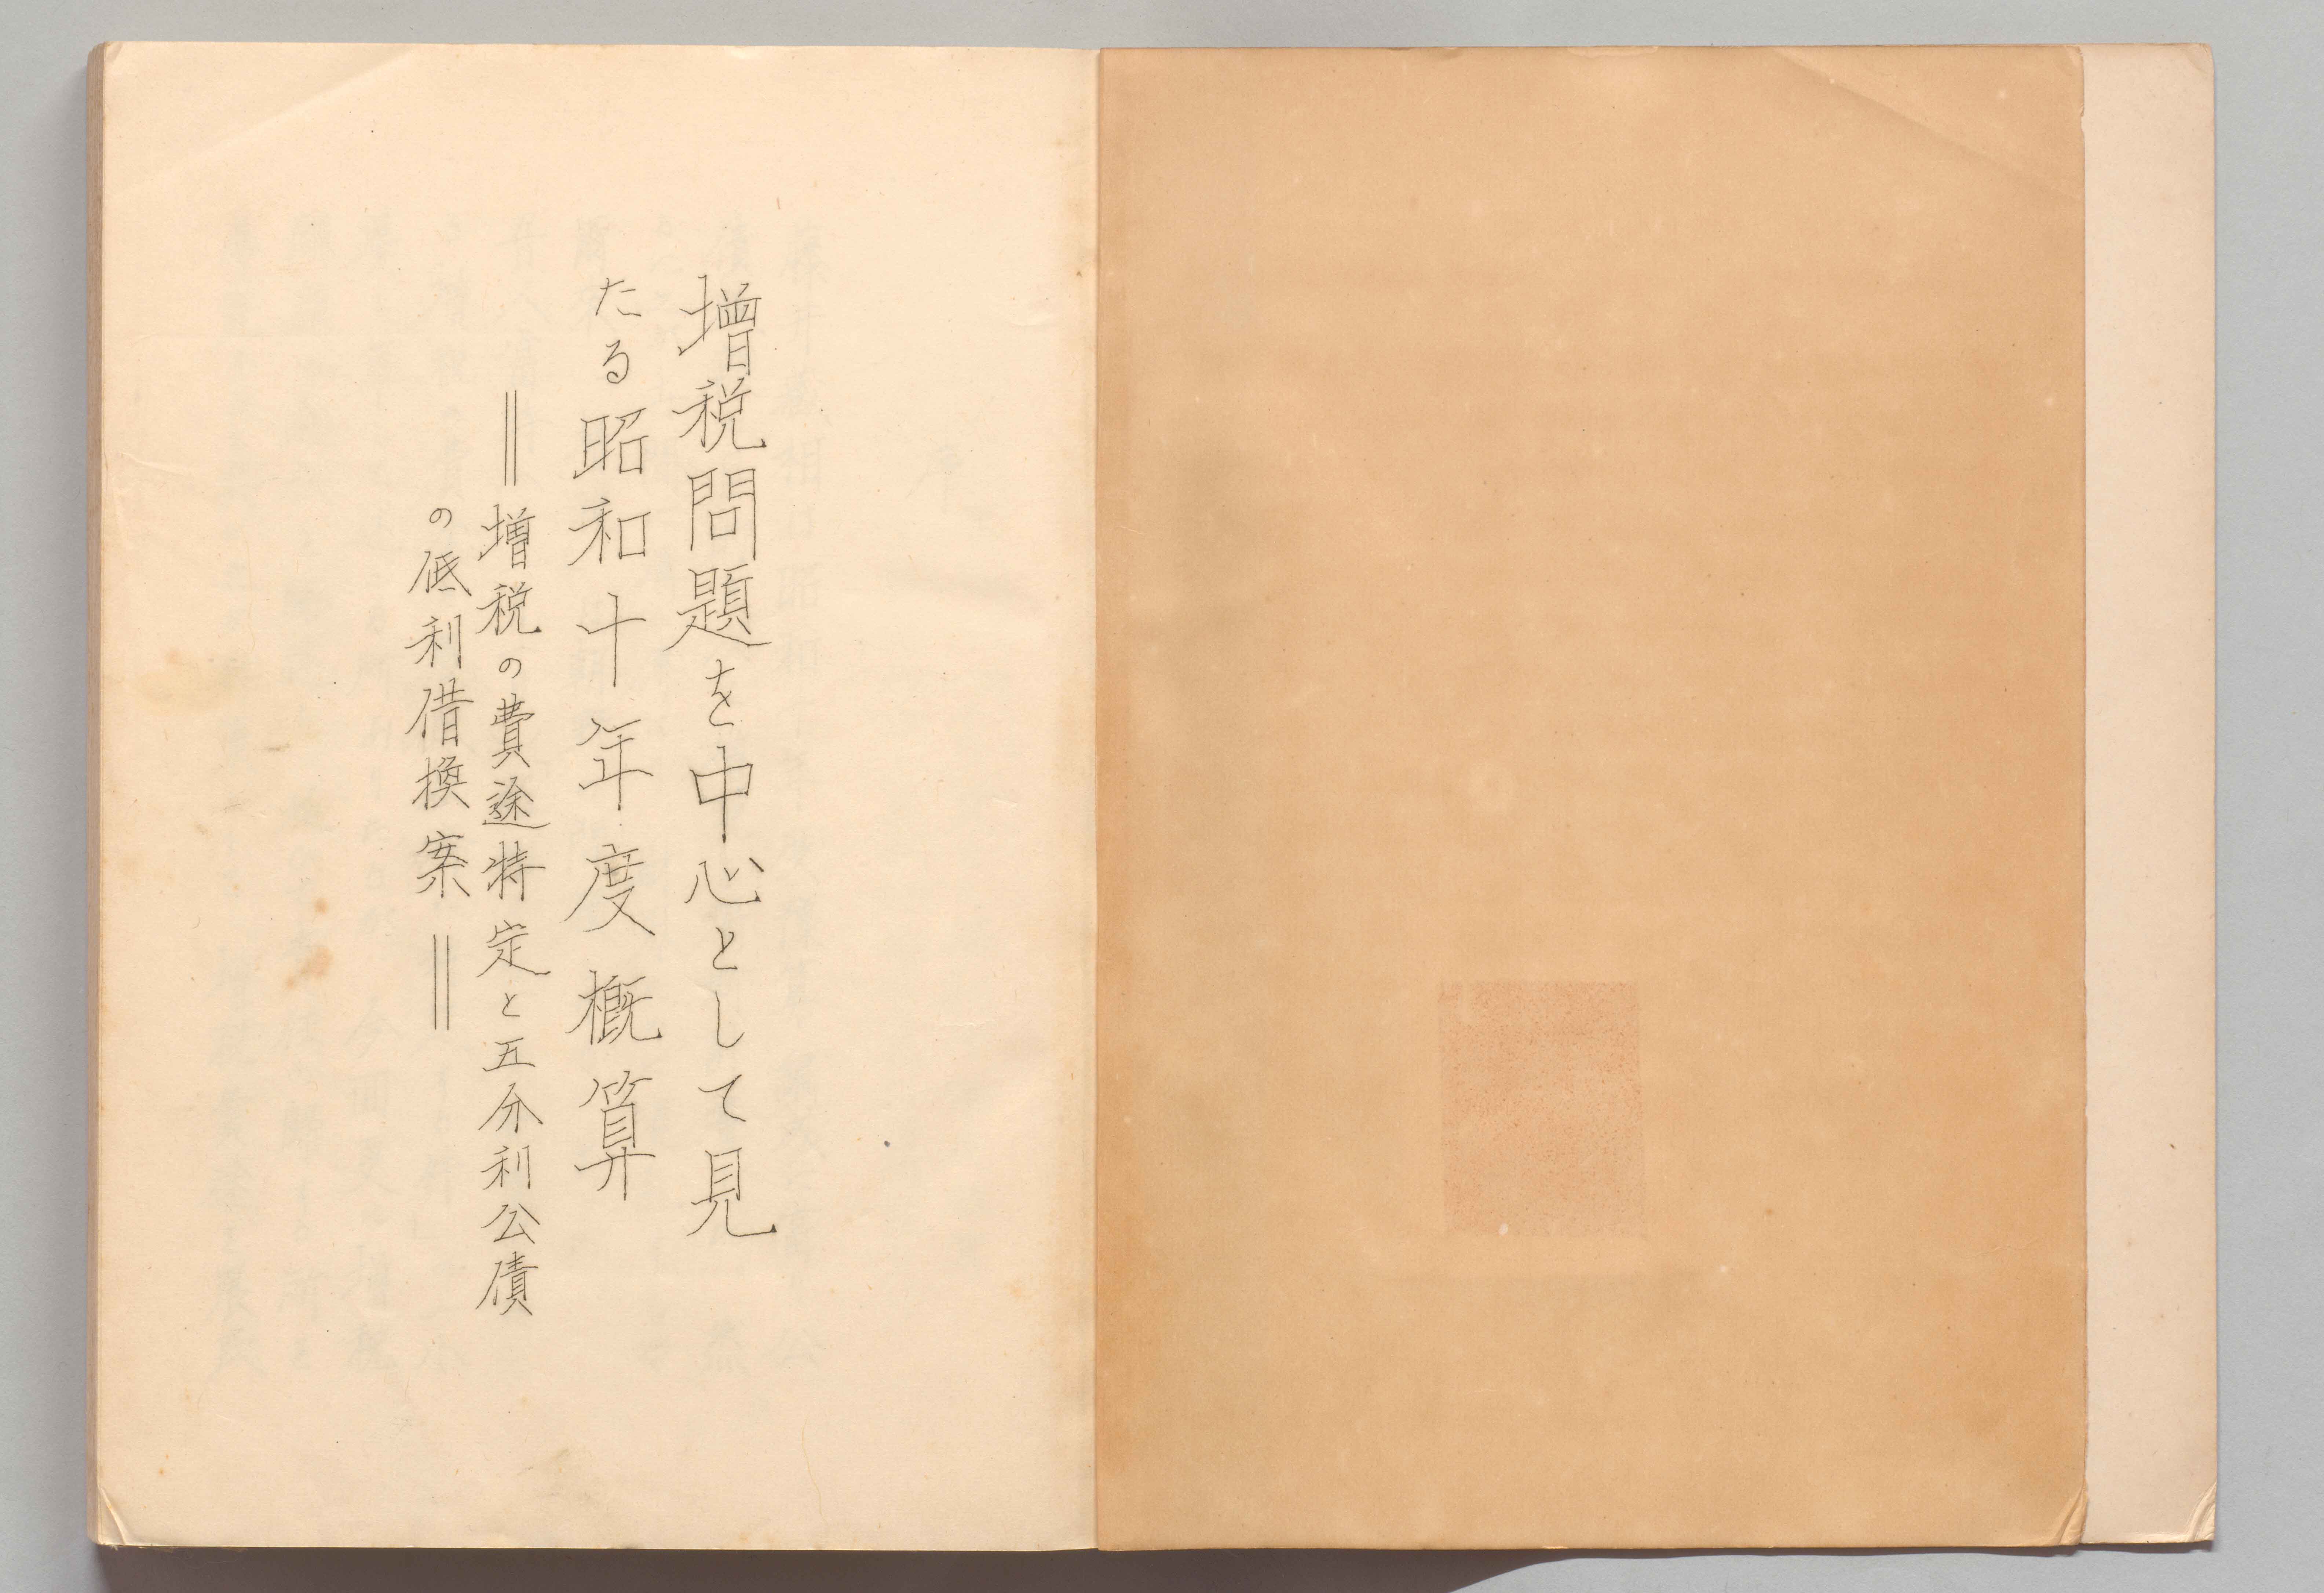 増税問題を中心として見
たる昭和十年度概算
＝増税の費途特定と五分利公債
の低利借換案＝